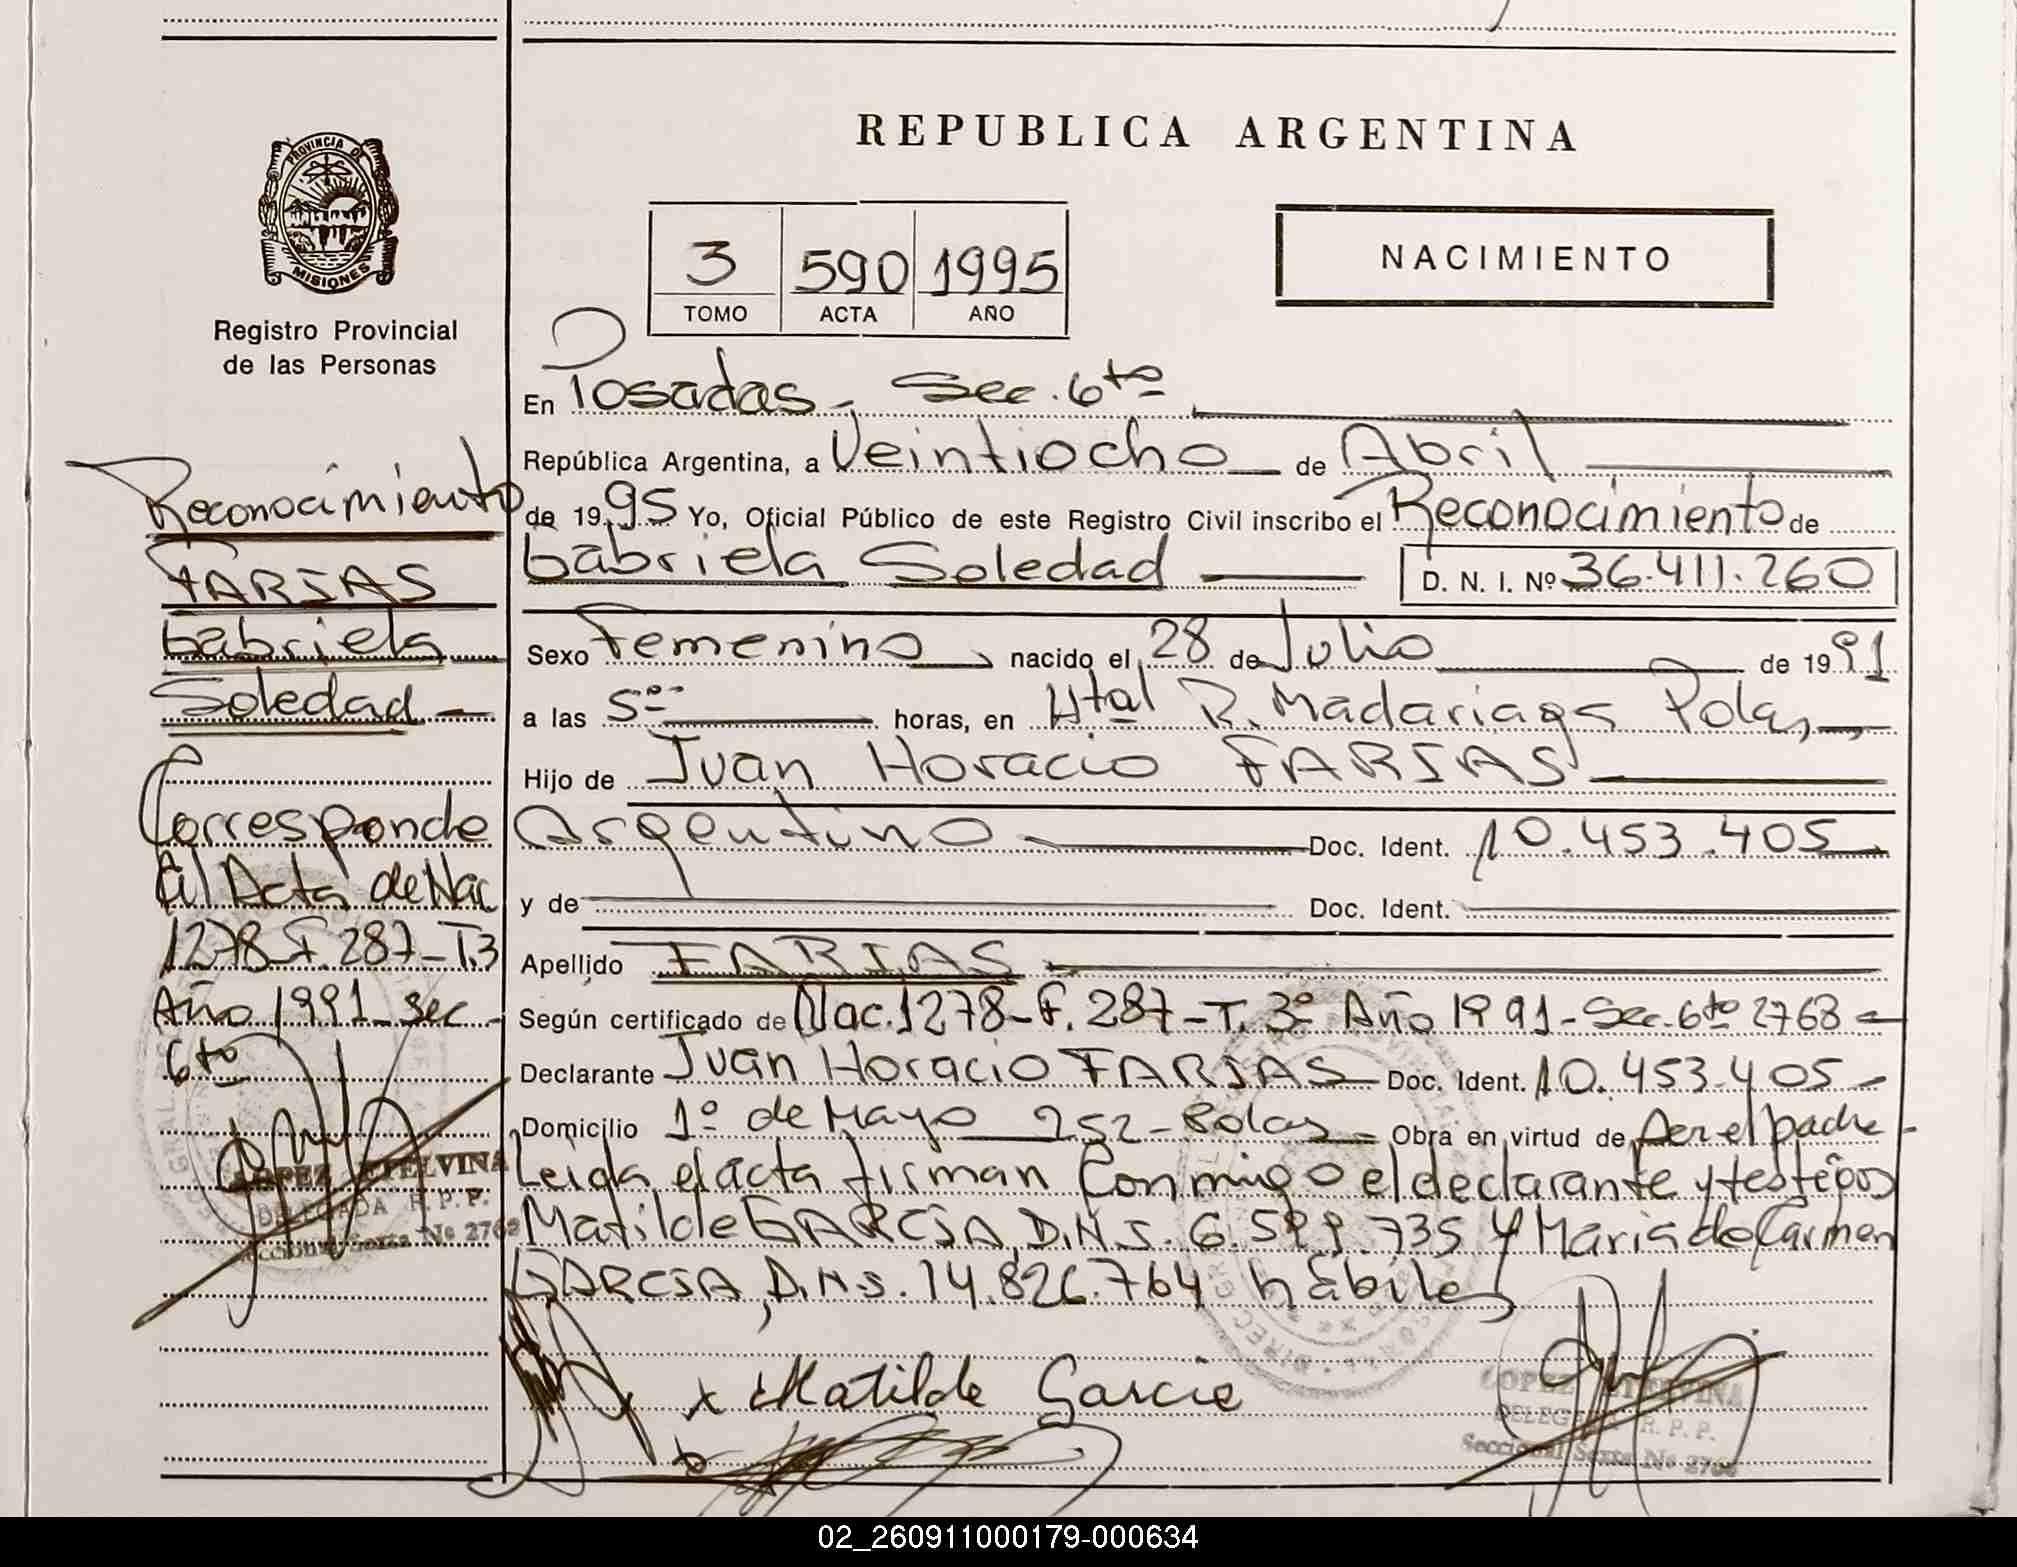 REPUBLICA ARGENTINA
PROVINCIA DE
MISIONES
Registro Provincial
de las Personas
3 590 1995
TOMO ACTA AÑO
NACIMIENTO
En Posadas, Sec. 6to
República Argentina, a Veintiocho de Abril
de 1995 Yo, Oficial Público de este Registro Civil inscribo el Reconocimiento de
Gabriela Soledad D. N. I. Nº 36.411.260
Sexo Femenino nacido el 28 de Julio de 1991
a las 5 horas, en Htal R. Madariaga Pdas,
Hijo de Juan Horacio FARIAS
Argentino Doc. Ident. 10.453.405
y de Doc. Ident.
Apellido FARIAS
Según certificado de Nac. 1278-F. 287-T. 3º Año 1991-Sec. 6to 2768
Declarante Juan Horacio FARIAS Doc. Ident. 10.453.405
Domicilio 1º de Mayo 252- Pdas Obra en virtud de Ser el padre-
Leida el acta firman Conmigo el declarante y testigos
Matilde GARCIA, D.N.I. 6. 735 y Maria de Carmen
GARCIA, D.N.I. 14.826.764 hábiles
x Matilde Garcia
LOPEZ ETELVINA
DELEGADA R.P.P.
Seccional Sexta Nº
Reconocimiento
FARIAS
Gabriela
Soledad
Corresponde
al Acta de Nac
1278 F. 287-T.3
Año 1991-Sec
6to
LOPEZ ETELVINA
DELEGADA R.P.P.
Seccional Sexta Nº
02_260911000179-000634